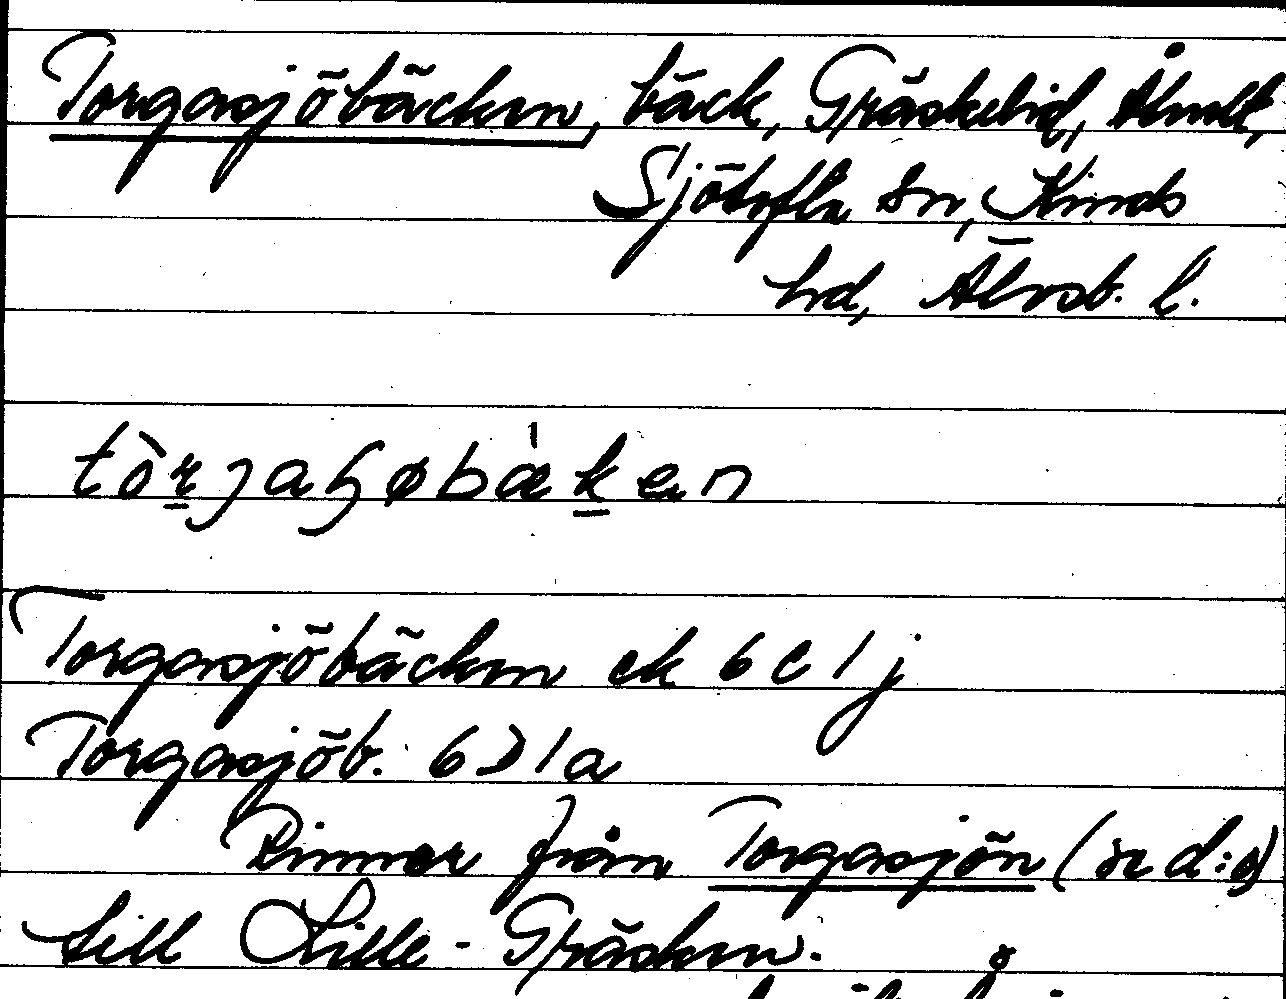 Torgasjöbäcken, bäck, Gräskelid, Älmlt,
Sjötofta sn, Kinds
hd, Älvsb. l.
tòrjaʂøbæken
Torgasjöbäcken ek 6C 1j
Torgasjöb. 6D 1a
Rinner från Torgasjön (se d:o)
till Lille-Gräsken.